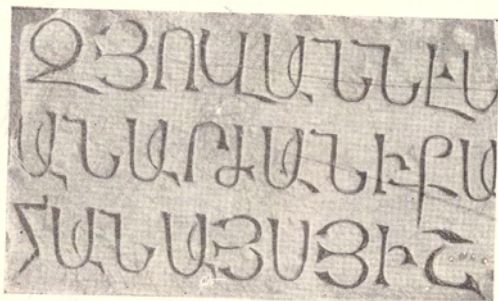 ԶՅՈՎԱՆՆԷՍ
ԱՆԱՐԺԱՆԻՔԱ
ՀԱՆԱՅՍՅԻՇ